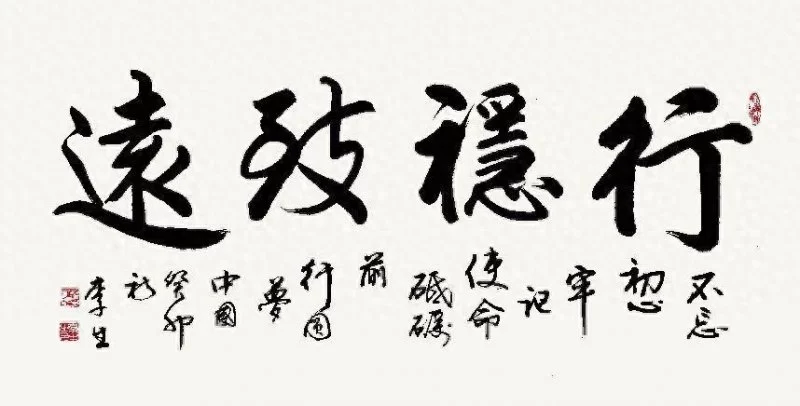 行穩致遠
不忘
初心
牢
記
使命
砥礪
前
行圆
夢
中國
癸卯
李生